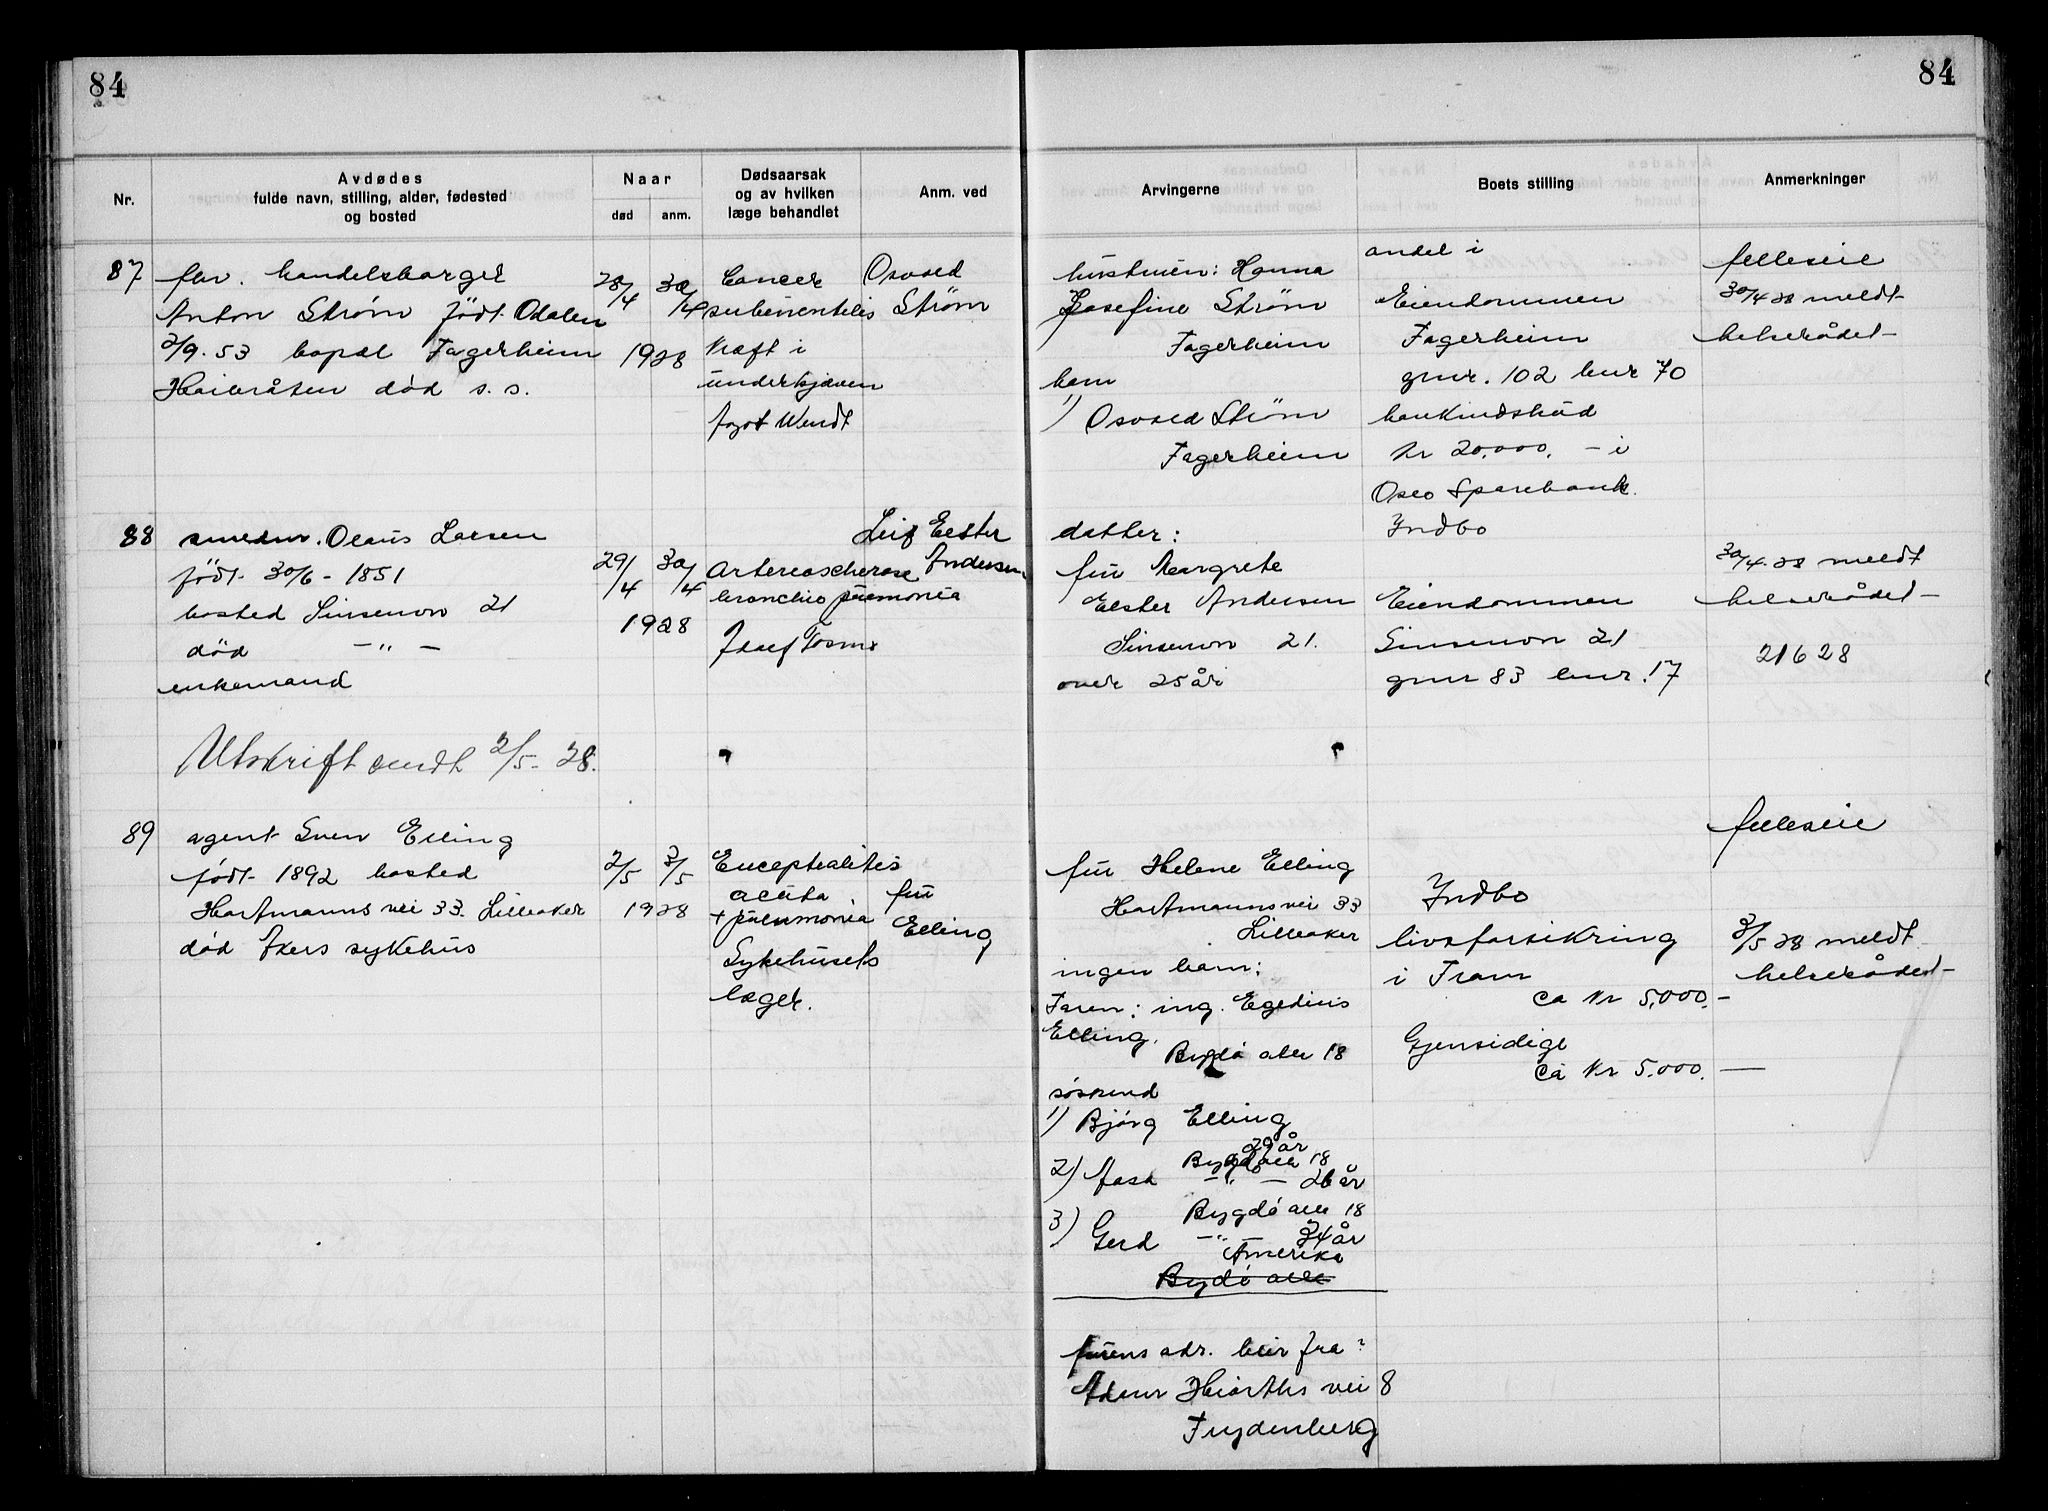 84
84
Nr.
Avdødes
fulde navn, stilling, alder, fødested
og bosted
Naar
død
anm.
Dødsaarsak
og av hvilken
læge behandlet
Anm. ved
Arvingerne
Boets stilling
Anmerkninger
87
fhv. handelsborger
Anton Strøm født Odalen
2/9. 53 bopæl Fagerheim
Høibråten død s. s.
28/4 30/4
1928
Cancer
Kræft i
underkjæven
Wendt
Osvald
Strøm
hustruen: Hanna
Josefine Strøm
Fagerheim
barn
1) Osvald Strøm
Fagerheim
andel i
Eiendommen
Fagerheim
gnr. 102 bnr 70
bankindskud
kr 20.000. - i
Oslo Sparebank.
felleseie
30/4 28 meldt
helserådet
88
smedm. Olaus Larsen
født 30/6 - 1851
bosted Sinsenvn 21
død - " -
enkemand
29/4 30/4
1928
Arterioschlerose
broncho pneumonia
Leif Elster
Andersen
datter:
fru Margrete
Elster Andersen
Sinsenvn 21.
over 25 år
Indbo
Eiendommen
Sinsenvn 21
gnr 83 bnr. 17
30/4-28 meldt
helserådet
21628
Utskrift sendt 2/5- 28.
89
agent Sven Elling
født 1892 bosted
Hartmanns vei 33. Lilleaker
død Akers sykehus
2/5 3/5
1928
Encephalitis
acuta
+ pneumonia
Sykehusets
læger.
fru
Elling
fru Helene Elling
Hartmanns vei 33
Lilleaker
ingen barn:
Faren: ing. Egedius
Elling.
Bygdø alle 18
søskend
1) Bjørg Elling
29 år
Bygdø alle 18
2) Aasa - " - 26 år
Bygdø alle 18
3) Gerd - " - 24 år
Amerika
Bygdø alle
fruens adr. blir fra?
Adm Hiorths vei 8
Frydenberg
Indbo
livsforsikring
i Fram
ca kr 5.000.-
Gjensidige
ca kr 5.000. -
felleseie
3/5 28 meldt
helserådet